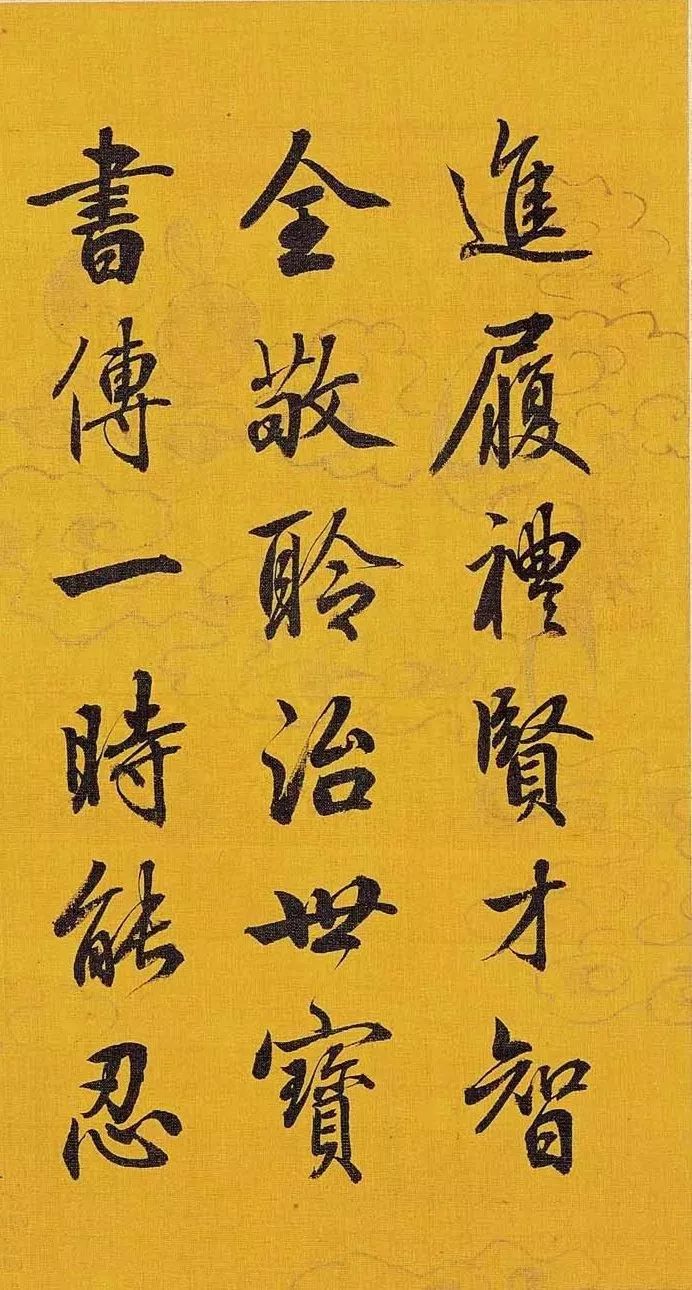 進履禮賢才智
全敬聆治世寶
書傳一時能忍